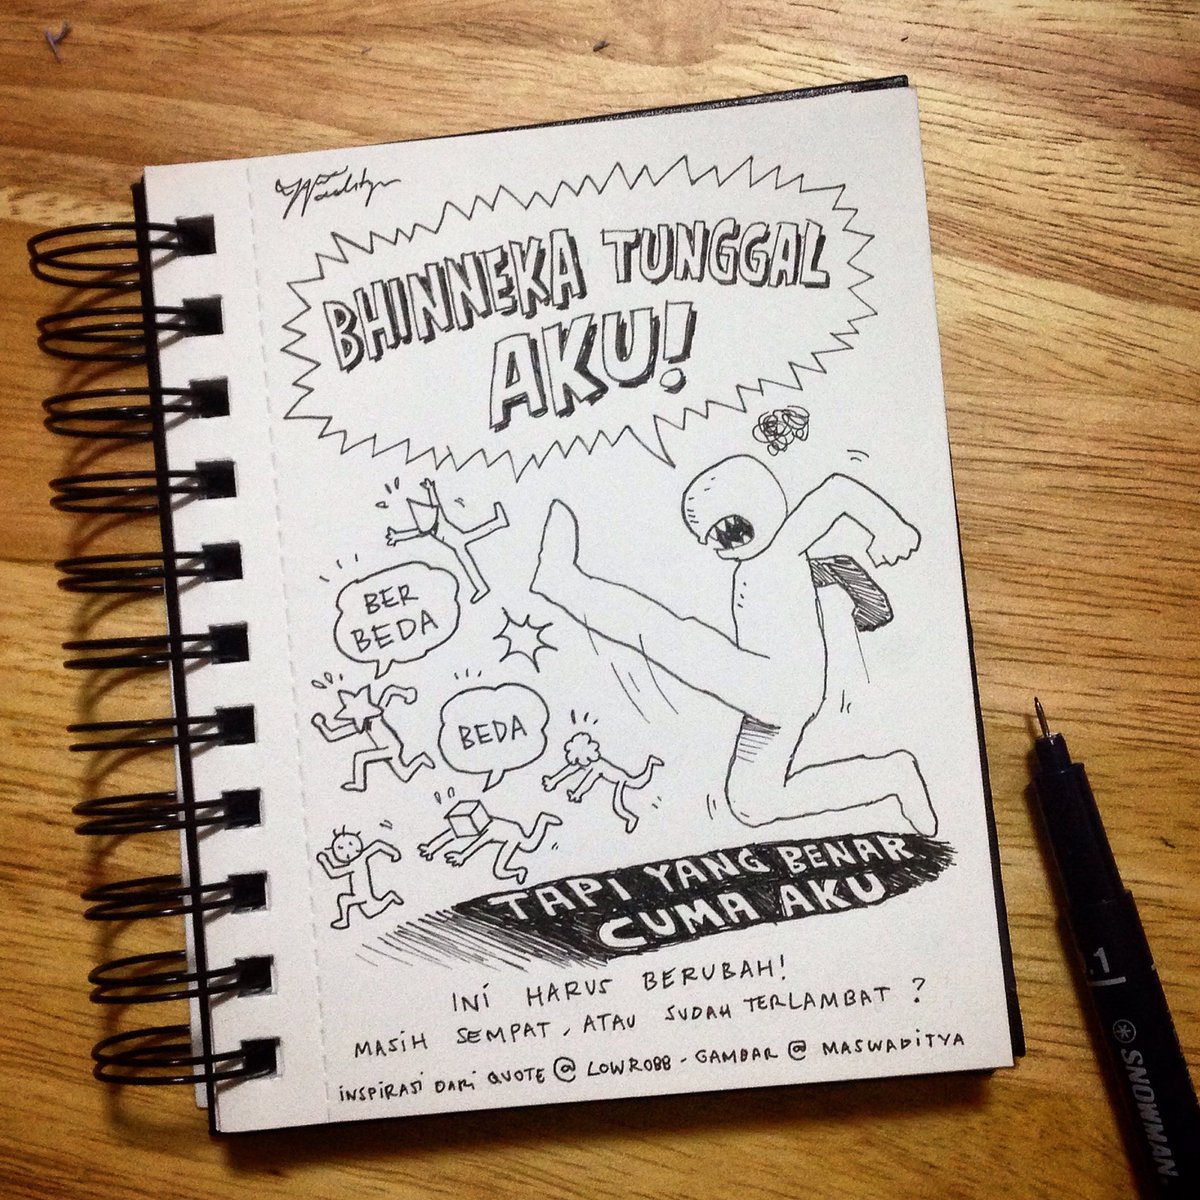 BHINNEKA TUNGGAL
AKU!
BER
BEDA
BEDA
TAPI YANG BENAR
CUMA AKU
INI HARUS BERUBAH!
MASIH SEMPAT, ATAU SUDAH TERLAMBAT?
INSPIRASI DARI QUOTE @LOWRO88 - GAMBAR @MASWADITYA
.1
SNOWMAN